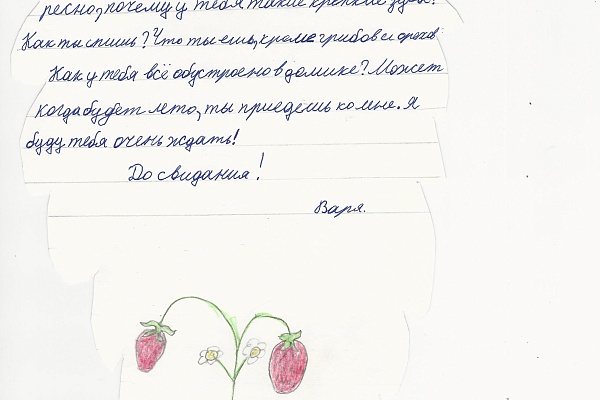 ресно, почему у тебя такие крепкие зубы?
Как ты спишь? Что ты ешь, кроме грибов и орехов?
Как у тебя всё обустроено в домике? Может
когда будет лето, ты приедешь ко мне. Я
буду тебя очень ждать!
До свидания!
Варя.